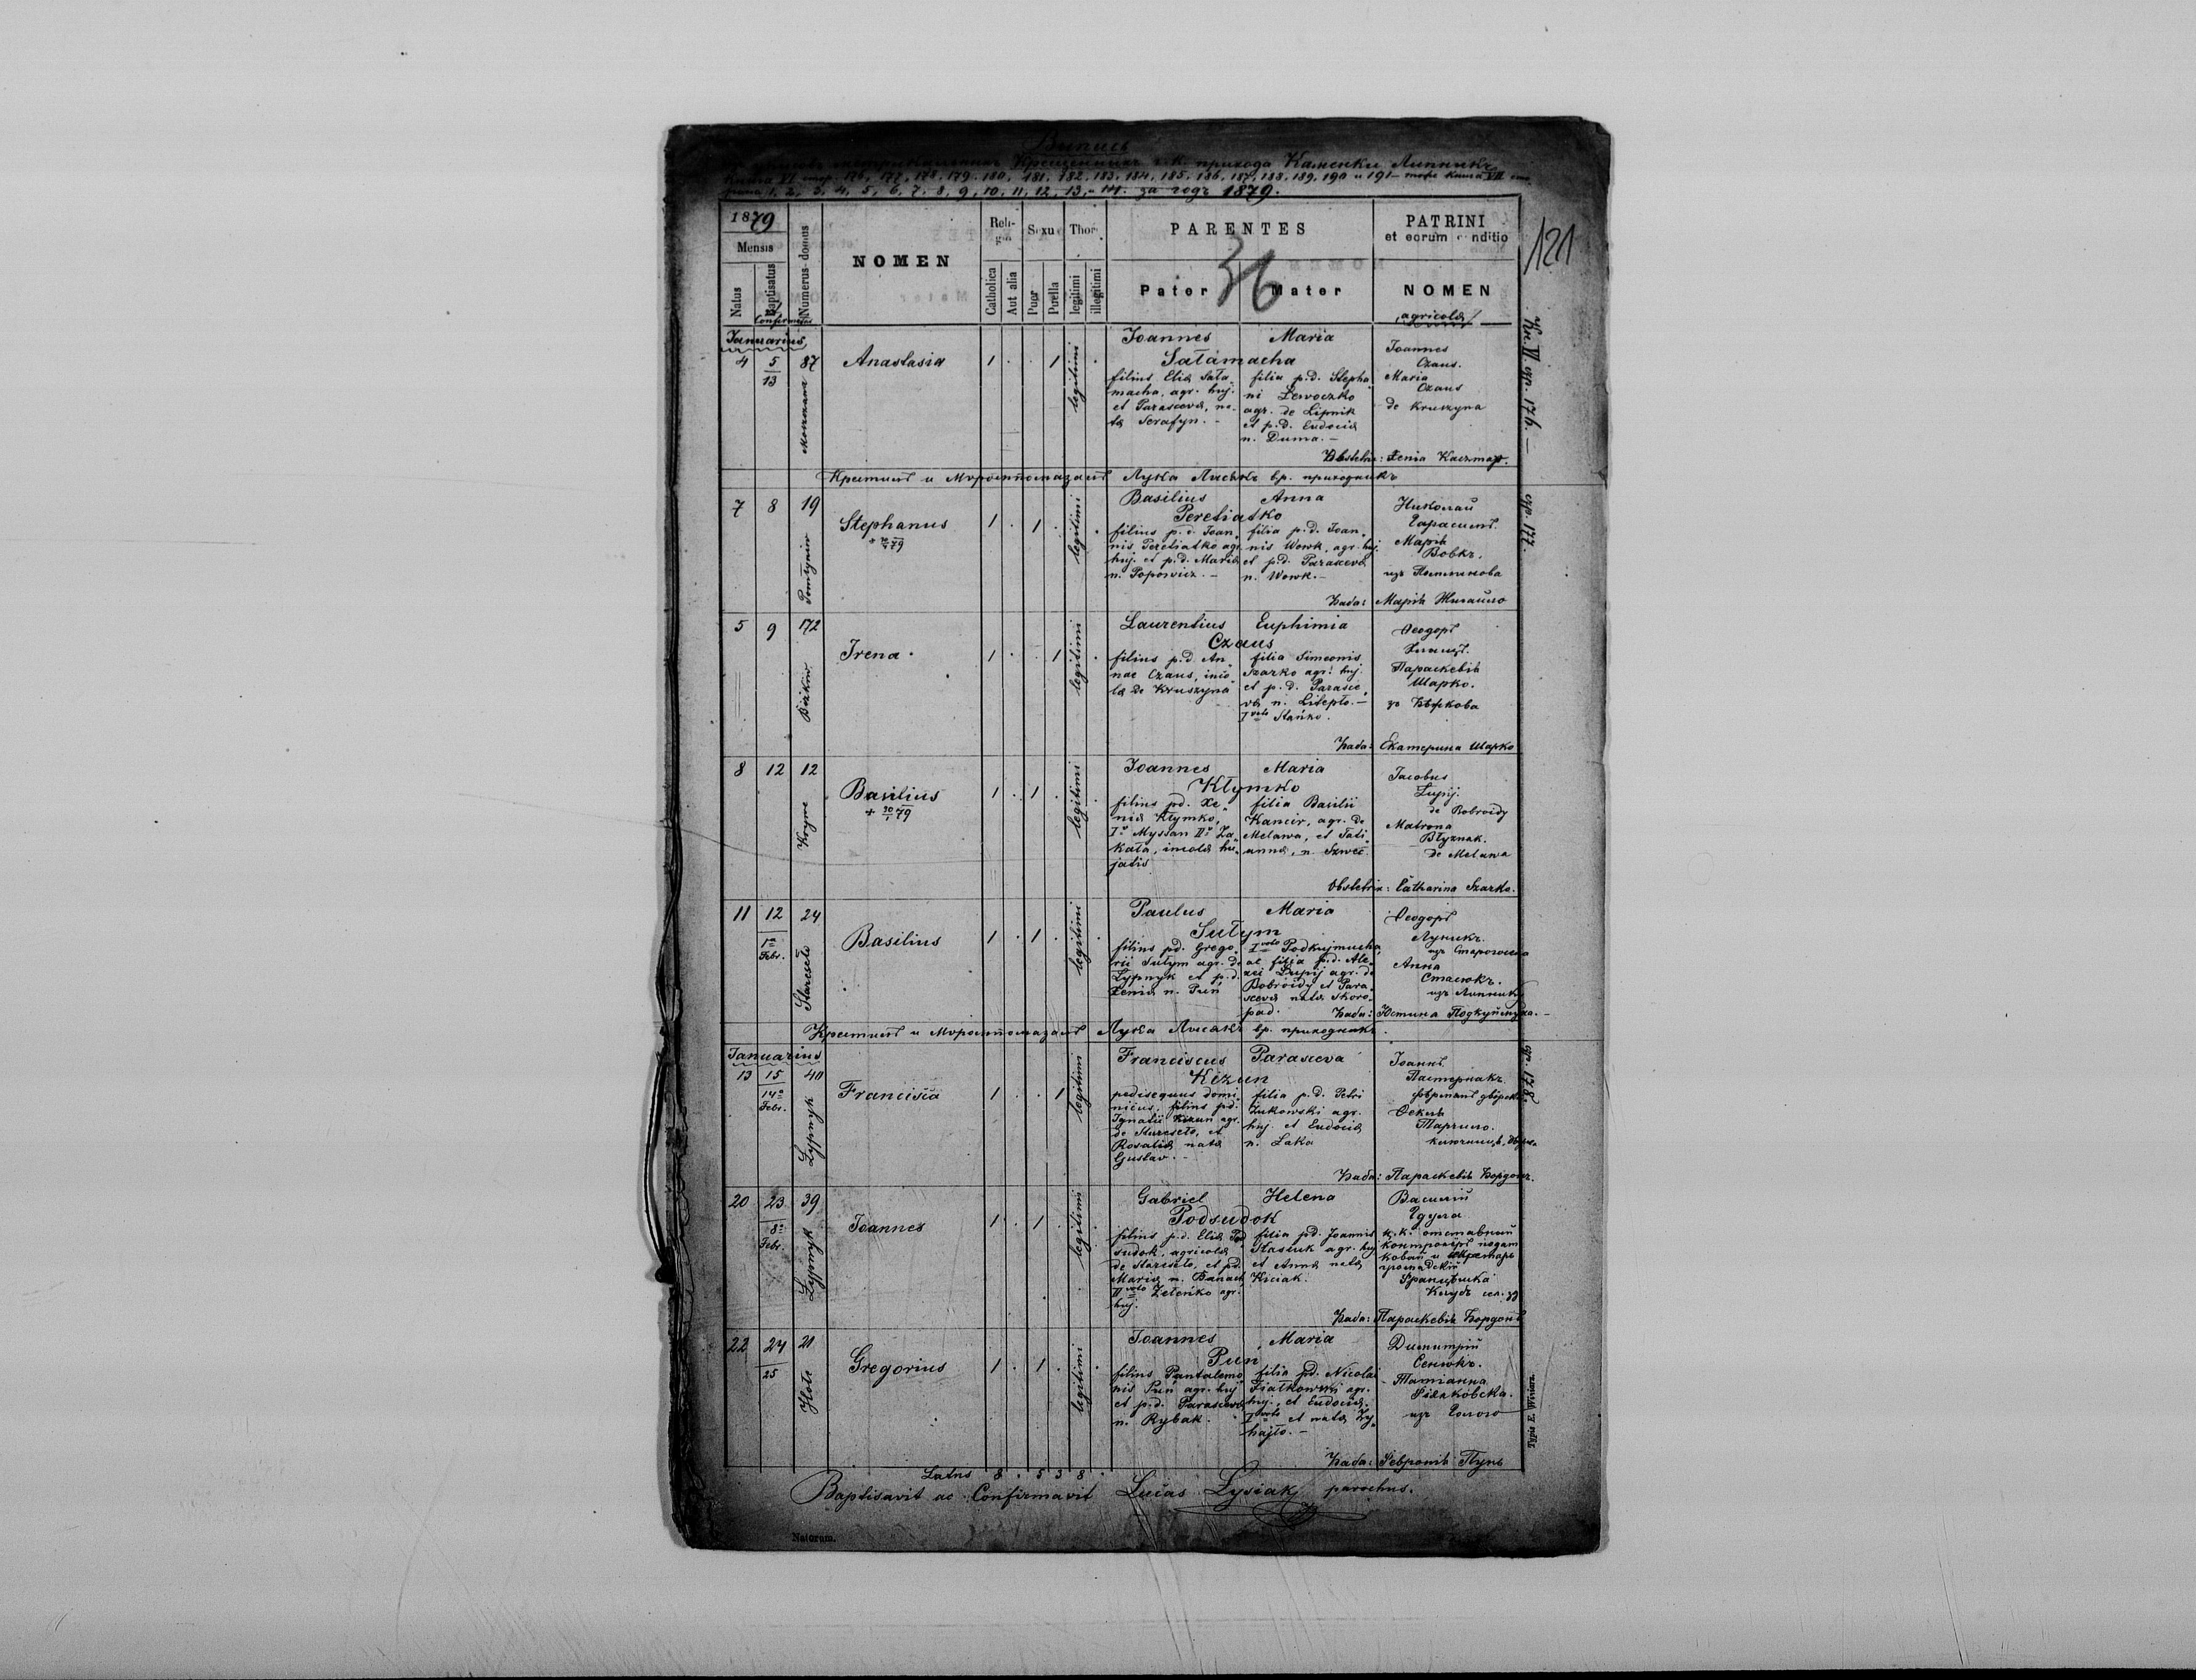 Выпись
Крещенныхъ г. к. прихода Каменки Липникъ
Книга VI стор. 176, 177, 178, 179, 180, 181, 182, 183, 184, 185, 186, 187, 188, 189, 190 и 191 – Книга VII
1, 2, 3, 4, 5, 6, 7, 8, 9, 10, 11, 12, 13, 14. за годъ 1879.
121
36
1879
Mensis
Natus
Baptisatus
Confirmatus
Numerus domus
NOMEN
Reli-
gio
Catholica
Aut alia
Sexu
Puer
Puella
Thor.
legitimi
illegitimi
PARENTES
Pater
Mater
PATRINI
et eorum conditio
NOMEN
agricolæ
Januarius
4 5 87
13
Moszczana
Anastasia
1 . . 1 legitimi .
Joannes Maria
Sałamacha
filius Eliæ Sała-
macha, agr. huj.
et Parascevæ, na-
tæ Serafyn. -
filia p.d. Stepha
ni Lewoczko
agr. de Lipnik
et p.d. Eudociæ
n. Duma. -
Joannes
Czaus.
Maria
Czaus
de Kruszyna
Obstetrix: Xenia Kaczmar.
Кн. VI. стр. 176. —
Крестилъ и Мѵропомазалъ Лука Лисякъ вр. приходникъ
7 8 19
Stephanus
1 . 1 . legitimi .
Basilius Anna
Peretiatko
filius p.d. Joan-
nis Peretiatko agr.
huj. et p.d. Mariæ
n. Popowicz. -
filia p.d. Joan-
nis Wowk, agr. huj.
et p.d. Parascevæ
n. Wowk. -
Николай
Гарасимъ.
Марія
Вовкъ.
Баба: Марія Жигайло
стр. 177.
5 9 172
Irena .
1 . . 1 legitimi .
Laurentius Euphimia
Czaus
filius p.d. An-
nae Czaus, inco
læ de Kruszyna
filia Simeonis
Szarko agr. huj.
et p.d. Parasce
væ n. Litepło. -
I voto Stańko.
Ѳеодоръ
Параскевія
Шарко.
Баба: Екатерина Шарко
8 12 12
Kryve
Basilius
+ 30/1 79
1 . 1 . legitimi .
Joannes Maria
Kłymko
filius pd. Xe-
niæ Kłymko,
I° Myssan II° Za-
kała, incolæ hu-
jatis
filia Basilii
Kancir, agr. de
Metawa, et Tati
annæ, n. Szwec.
Jacobus
Łupij.
de Bobroidy
Matrona
Błyznak.
de Metawa
Obstetrix: Catharina Szarko.
11 12 24
1ª
Febr.
Staresело
Basilius
1 . 1 . legitimi .
Paulus Maria
Sułym
filius pd. Grego
rii Sułym agr. de
Lypnyk et p.d.
Xeniæ n. Puń
I voto Podkujmucha,
ac filia p.d. Ale-
xii Łupij agr. de
Bobroidy et Para-
scevæ natæ Skoro-
pad.
Ѳеодоръ
Луникъ.
Анна
Стасюкъ.
изъ Липника
Баба: Юстина Подкуймуха. -
Крестилъ и Мѵропомазалъ Лука Лисякъ вр. приходникъ.
Januarius
13 15 40
14ª
Febr.
Lypnyk
Francisca
1 . . 1 legitimi
Franciscus Parasceva
Kizun
pedisequus domi-
nicus, filius pd.
Ignatii Kizuń agr.
de Staresело, et
Rosaliæ natæ
Gustav. -
filia p.d. Petri
Żukowski agr.
huj. et Eudociæ
n. Łaka
Іоаннъ
Пастернакъ
Ѳекла
Баба: Параскевія Бордонъ.
стр. 178.
20 23 39
8ª
Febr.
Lypnyk
Joannes
1 . 1 . legitimi .
Gabriel Helena
Podsudok
filius p.d. Eliæ Pod
sudok, agricolæ
de Staresело, et pd.
Mariæ n. Banach
II voto Zeleńko agr.
huj.
filia pd. Joannis
Stasiuk agr. huj
et Annæ natæ
Kiciak.
Василій
Баба: Параскевія Бордонъ
22 24 21
25
Hołe
Gregorius
1 . 1 . legitimi .
Joannes Maria
Pun
filius Pantalemo
nis Puń agr. huj
et p.d. Parascevæ
n. Rybak.
filia pd. Nicolai
Fiałkowski agr.
huj., et Eudociæ
I voto et natæ Hy-
hajło. -
Димитрій
Сенюкъ.
Татіанна
Фіялковска.
изъ Голого
Баба: Февронія Пунь
Latus 8 . 5 3 8 .
Baptisavit ac Confirmavit Lucas Lysiak parochus.
Natorum.
Typis E. Winiarz.